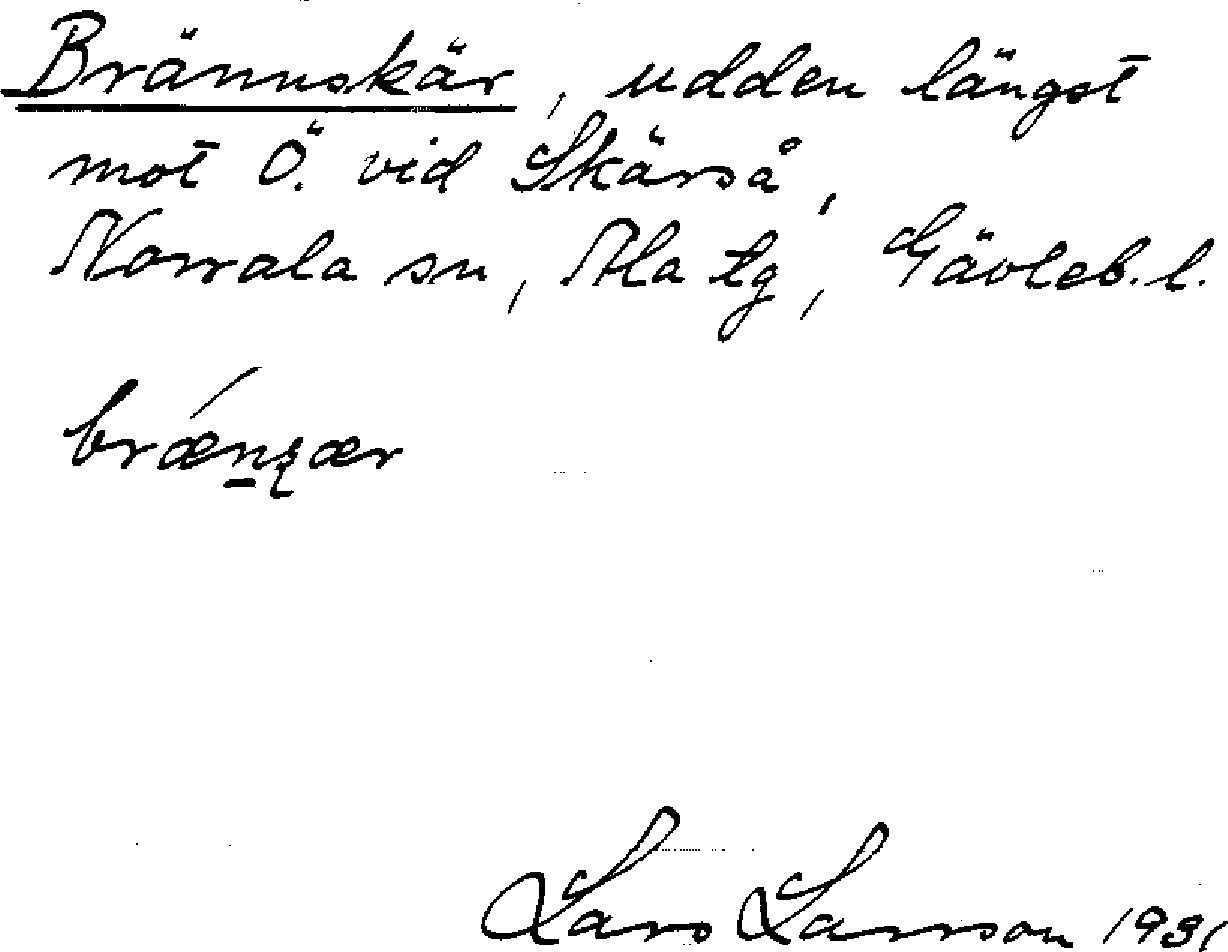 Brännskär, udden längst
mot Ö. vid Skärså,
Norrala sn, Ala tg, Gävleb. l.
Lars Larsson